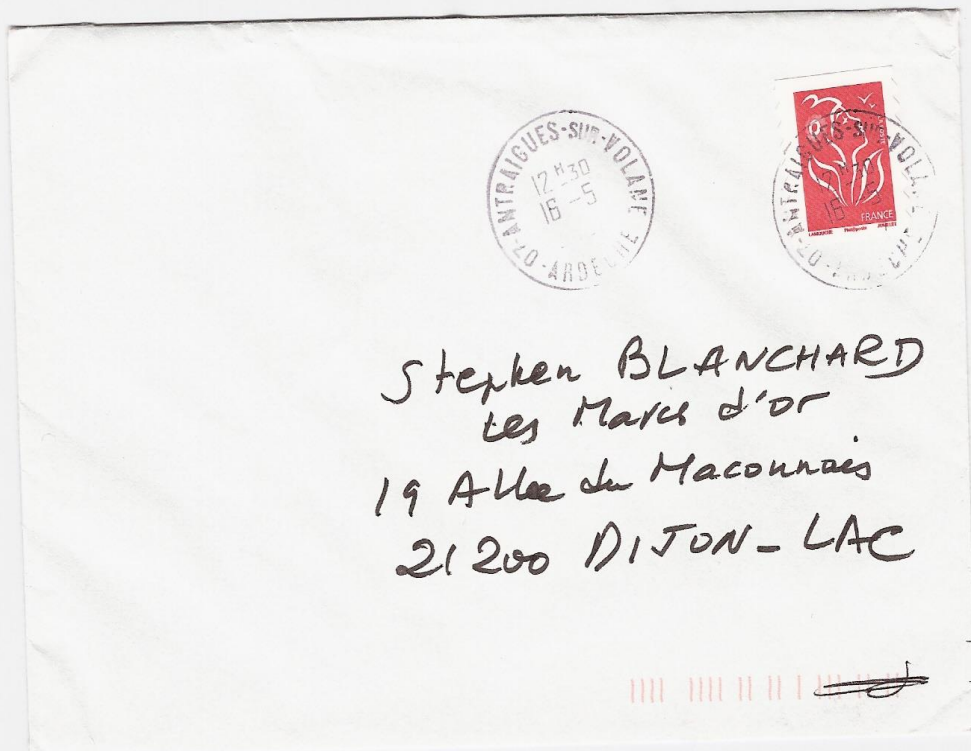 ANTRAIGUES-SUR-VOLANE
12H30
16 -5
07-ARDECHE
ANTRAIGUES-SUR-VOLANE
12H30
16 -5
07-ARDECHE
FRANCE
LAMOUCHE
Stephen BLANCHARD
Les Marcs d'or
19 Allee du Maconnais
21200 DIJON-LAC